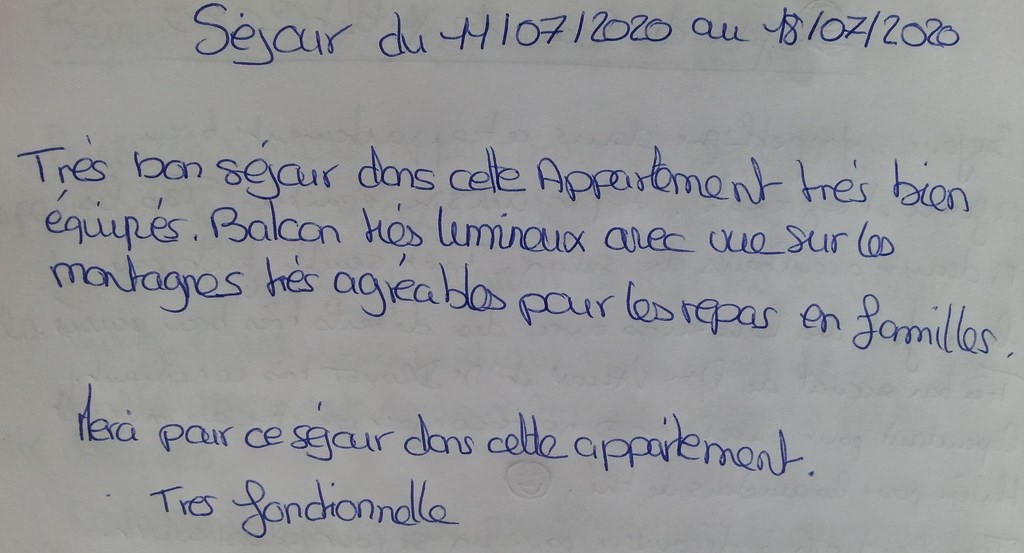 Séjour du 11/07/2020 au 18/07/2020
Très bon séjour dans cette Appartement très bien
équipés. Balcon très lumineux avec vue sur les
montagnes très agréables pour les repas en familles.
Merci pour ce séjour dans cette appartement.
Tres fonctionnelle